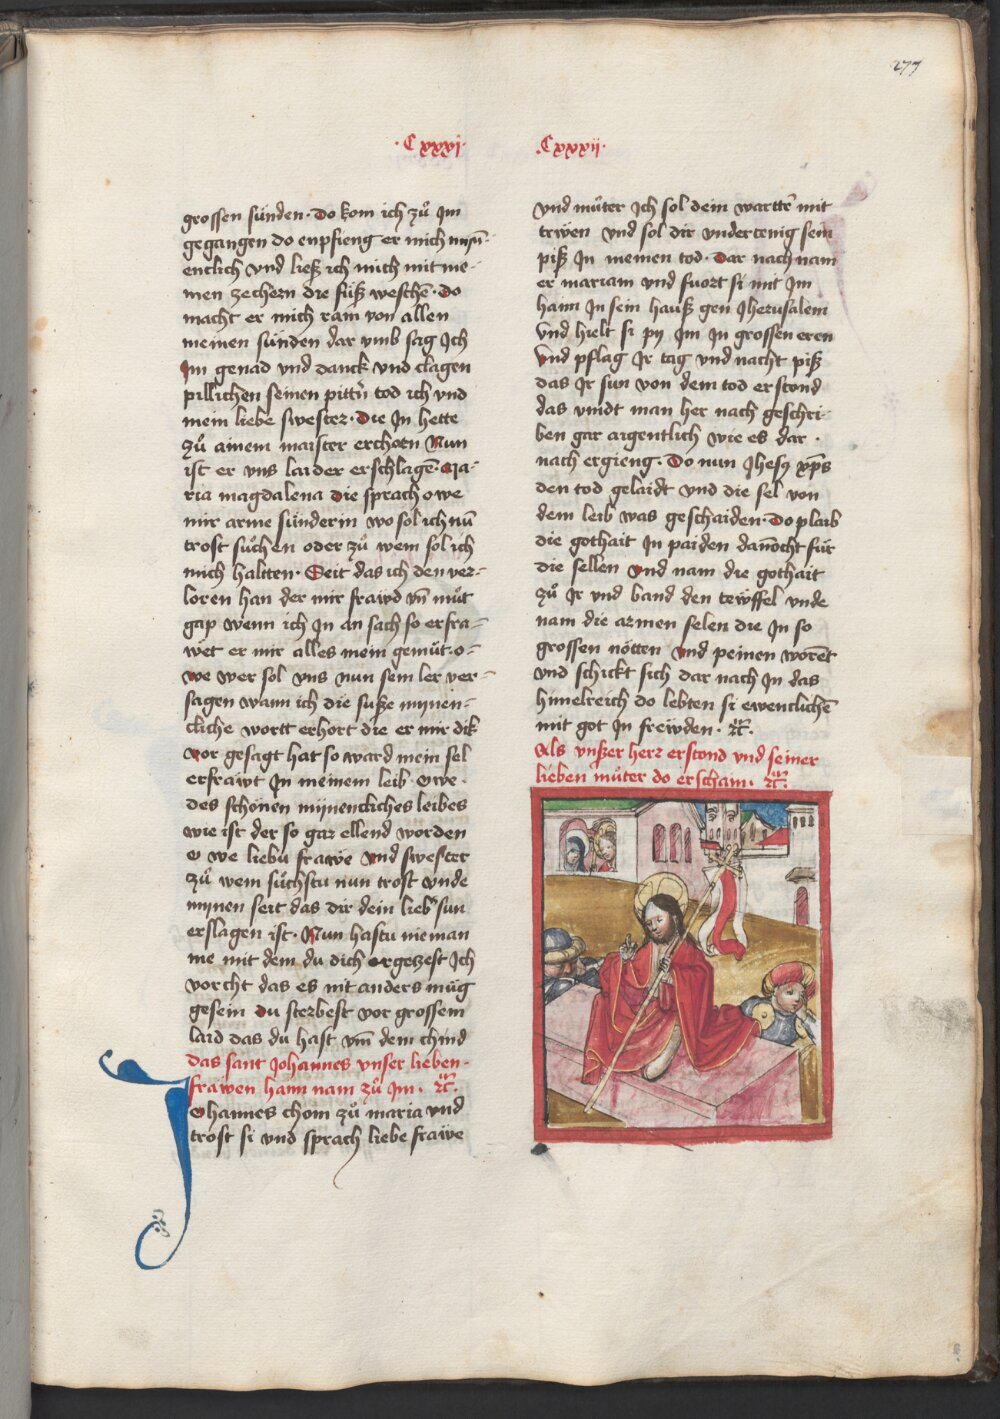 277
·Cxxxi·
·Cxxxij·
grossen sünden· Do kom ich zů Im
gegangen do enpfieng er mich myn̄
enclich vnd ließ ich mich mit me-
men zechern die füß weschē· Do
macht er mich rain von allen
meinen sünden dar vmb sag Ich
Im genad vnd danck vnd clagen
pillichen seinen pittrn̄ tod ich vnd
mein liebe swester· Die In hette
zů ainem maister erchorn Nun
ist er vns laider erschlagē· Ma-
ria magdalena die sprach owe
mir arme sünderin wo sol ich nū
trost sůchen oder zů wem sol ich
mich haltten· Seit das ich den ver-
loren han der mir fräwd vn̄ můt
gap wenn ich In an sach so erfra-
wet er mir alles mein gemüt· o-
we wer sol vns nun sein ler ver-
sagen wann ich die süsse mynen-
cliche wortt erhort die er mir dik
vor gesagt hat so ward mein sel
erfräwt In meinem leib owe·
des schönen mynencliches leibes
wie ist der so gar ellend worden
O we liebü frawe vnd swester
zů wem sůchstu nun trost vnde
mynen seit das dir dein lieb sun
erslagen ist· Nun hastu nieman
me mit dem du dich ergetzest Ich
vorcht das es nit anders müg
gesein du sterbest vor grossem
laid das du hast vm̄ dem chind
das sant Johannes vnser lieben-
frawen haim nam zů Im· ꝛc̄·
Johannes chom zů maria vnd
trost si vnd sprach liebe frawe
vnd můter Ich sol dein warttn̄ mit
trewen vnd sol dir vndertenig sein
piß In meinen tod· Dar nach nam
er mariam vnd fuort si mit Im
haim In sein hauß gen Jherusalem
Vnd hielt si py Im In grossen eren
Vnd pflag Ir tag vnd nacht piß
das Ir sun von dem tod erstond
das vindt man her nach geschri-
ben gar aigentlich wie es dar·
nach ergieng· Do nun Jhesꝯ xp̄s
den tod gelaidt vnd die sel von
dem leib was geschaiden· Do plaib
die gothait In paiden dañocht für
die sellen vnd nam die gothait
zů Ir vnd band den tewffel vnde
nam die armen selen die In so
grossen nötten vnd peinen worēt
vnd schickt sich dar nach In das
himelreich do lebten si ewenclichē
mit got In frewden· ꝛc̄·
Als vnßer herr erstond vnd seiner
lieben můter do erscham· ꝛc̄·